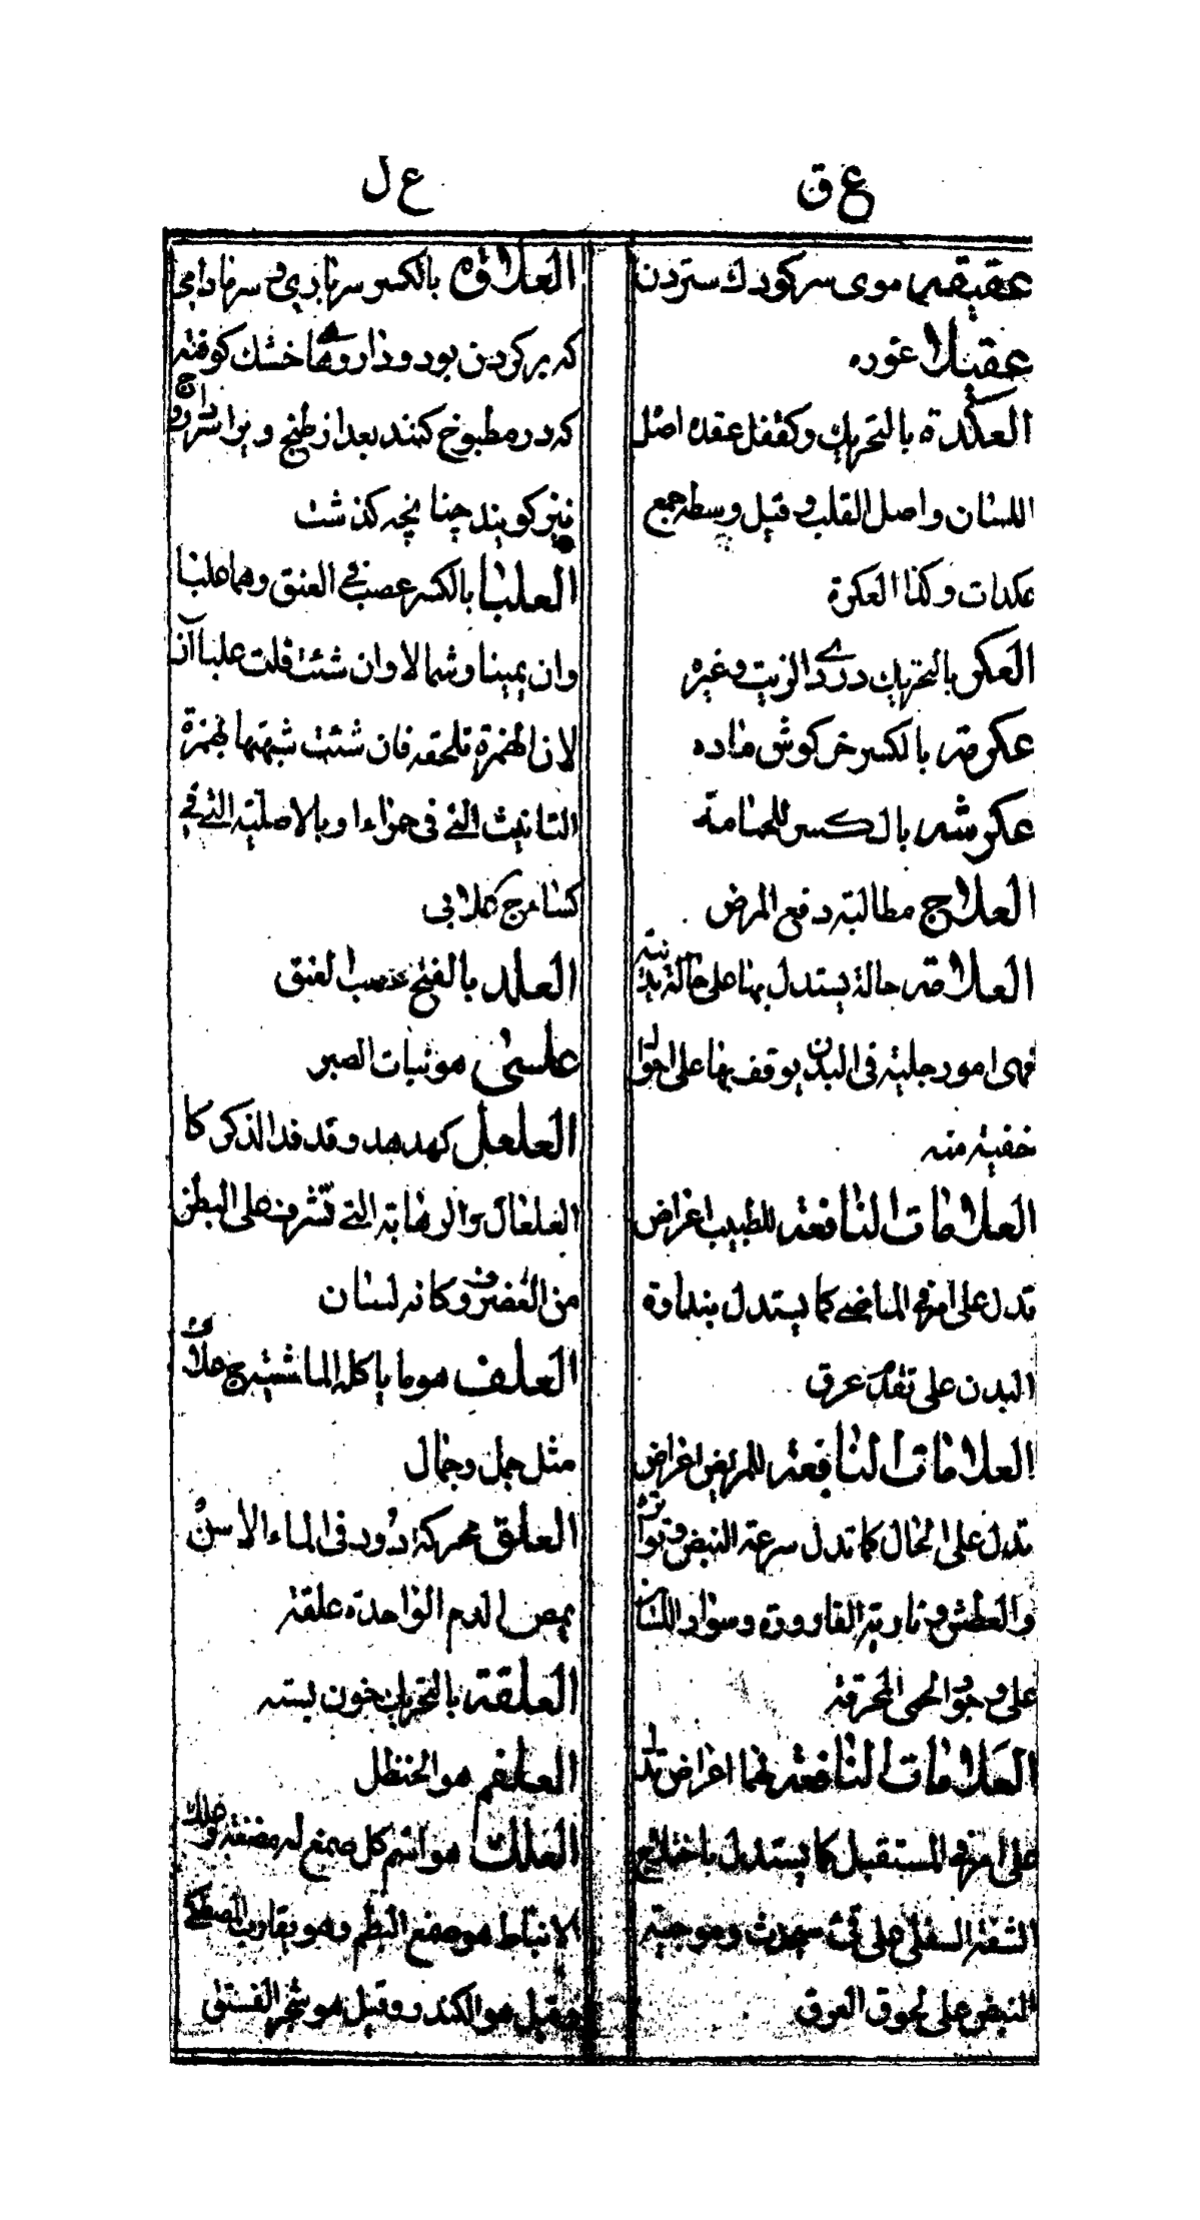 ع ق
عقيقه موى سر كودك ستردن
عقيلا غوره
العكدة بالتحريك وكقفل عقده اصل
اللسان واصل القلب و قيل وسطه جمع
عكدات وكذا العكرة
العكر بالتحريك دردى الزيت وغيره
عكرمه بالكسر خركوش ماده
عكرشه بالكسر للحمامة
العلاج مطالبة دفع المرض
العلامه حالة يستدل بها على حالة بدنية
فهى امور جلية فى البدن يوقف بها على احوال
خفية منه
العلامات النافعه للطبيب اعراض
تدل على امر فى الماضى كما يستدل بنداوة
البدن على تقدم عرق
العلامات النافعه للمريض اعراض
تدل على الحال كما تدل سرعة النبض وتواتره
والعطش و نارية القارورة وسواد اللسان
على وجود الحمى المحرقة
العلامات النافعه لهما اعراض تدل
على امر فى المستقبل كما يستدل باختلاج
الشفة السفلى على قئ سيحدث وموجية
النبض على لحوق العرق
ع ل
العلاقه بالكسر سرتازى و سرما دامى
كه بر كردن بود و داروها خشك كوفته
كه در مطبوخ كنند بعد از طبخ و برا
نيز كويند چنانچه كذشت
العلبا بالكسر عصب فى العنق وهما علبا
وان يمينا وشمالا وان شئت قلت علباآن
لان الهمزة ملحقه فان شئت شبهتها بهمزة
التانيث التى فى حمراء او بالاصلية التى فى
كساء ج علابى
العلد بالفتح عصب العنق
علسى هو نبات الصبر
العلعل كهدهد وقد فد الذكر كا
لعلعال والرهابة التى تشرف على البطن
من الغضروف كانه لسان
العلف هو ما ياكله الماشية ج علاف
مثل جمل وجمال
العلق محركة دود فى الماء الاسن
يمص الدم الواحدة علقة
العلقة بالتحريك خون بسته
العلقم هو الحنظل
العلك هو اسم كل صمغ له مضغة و علك
الانباط هو صمغ البطم وهو يقارب المصطكى
وقيل هو الكندر وقيل هو شجر الفستق